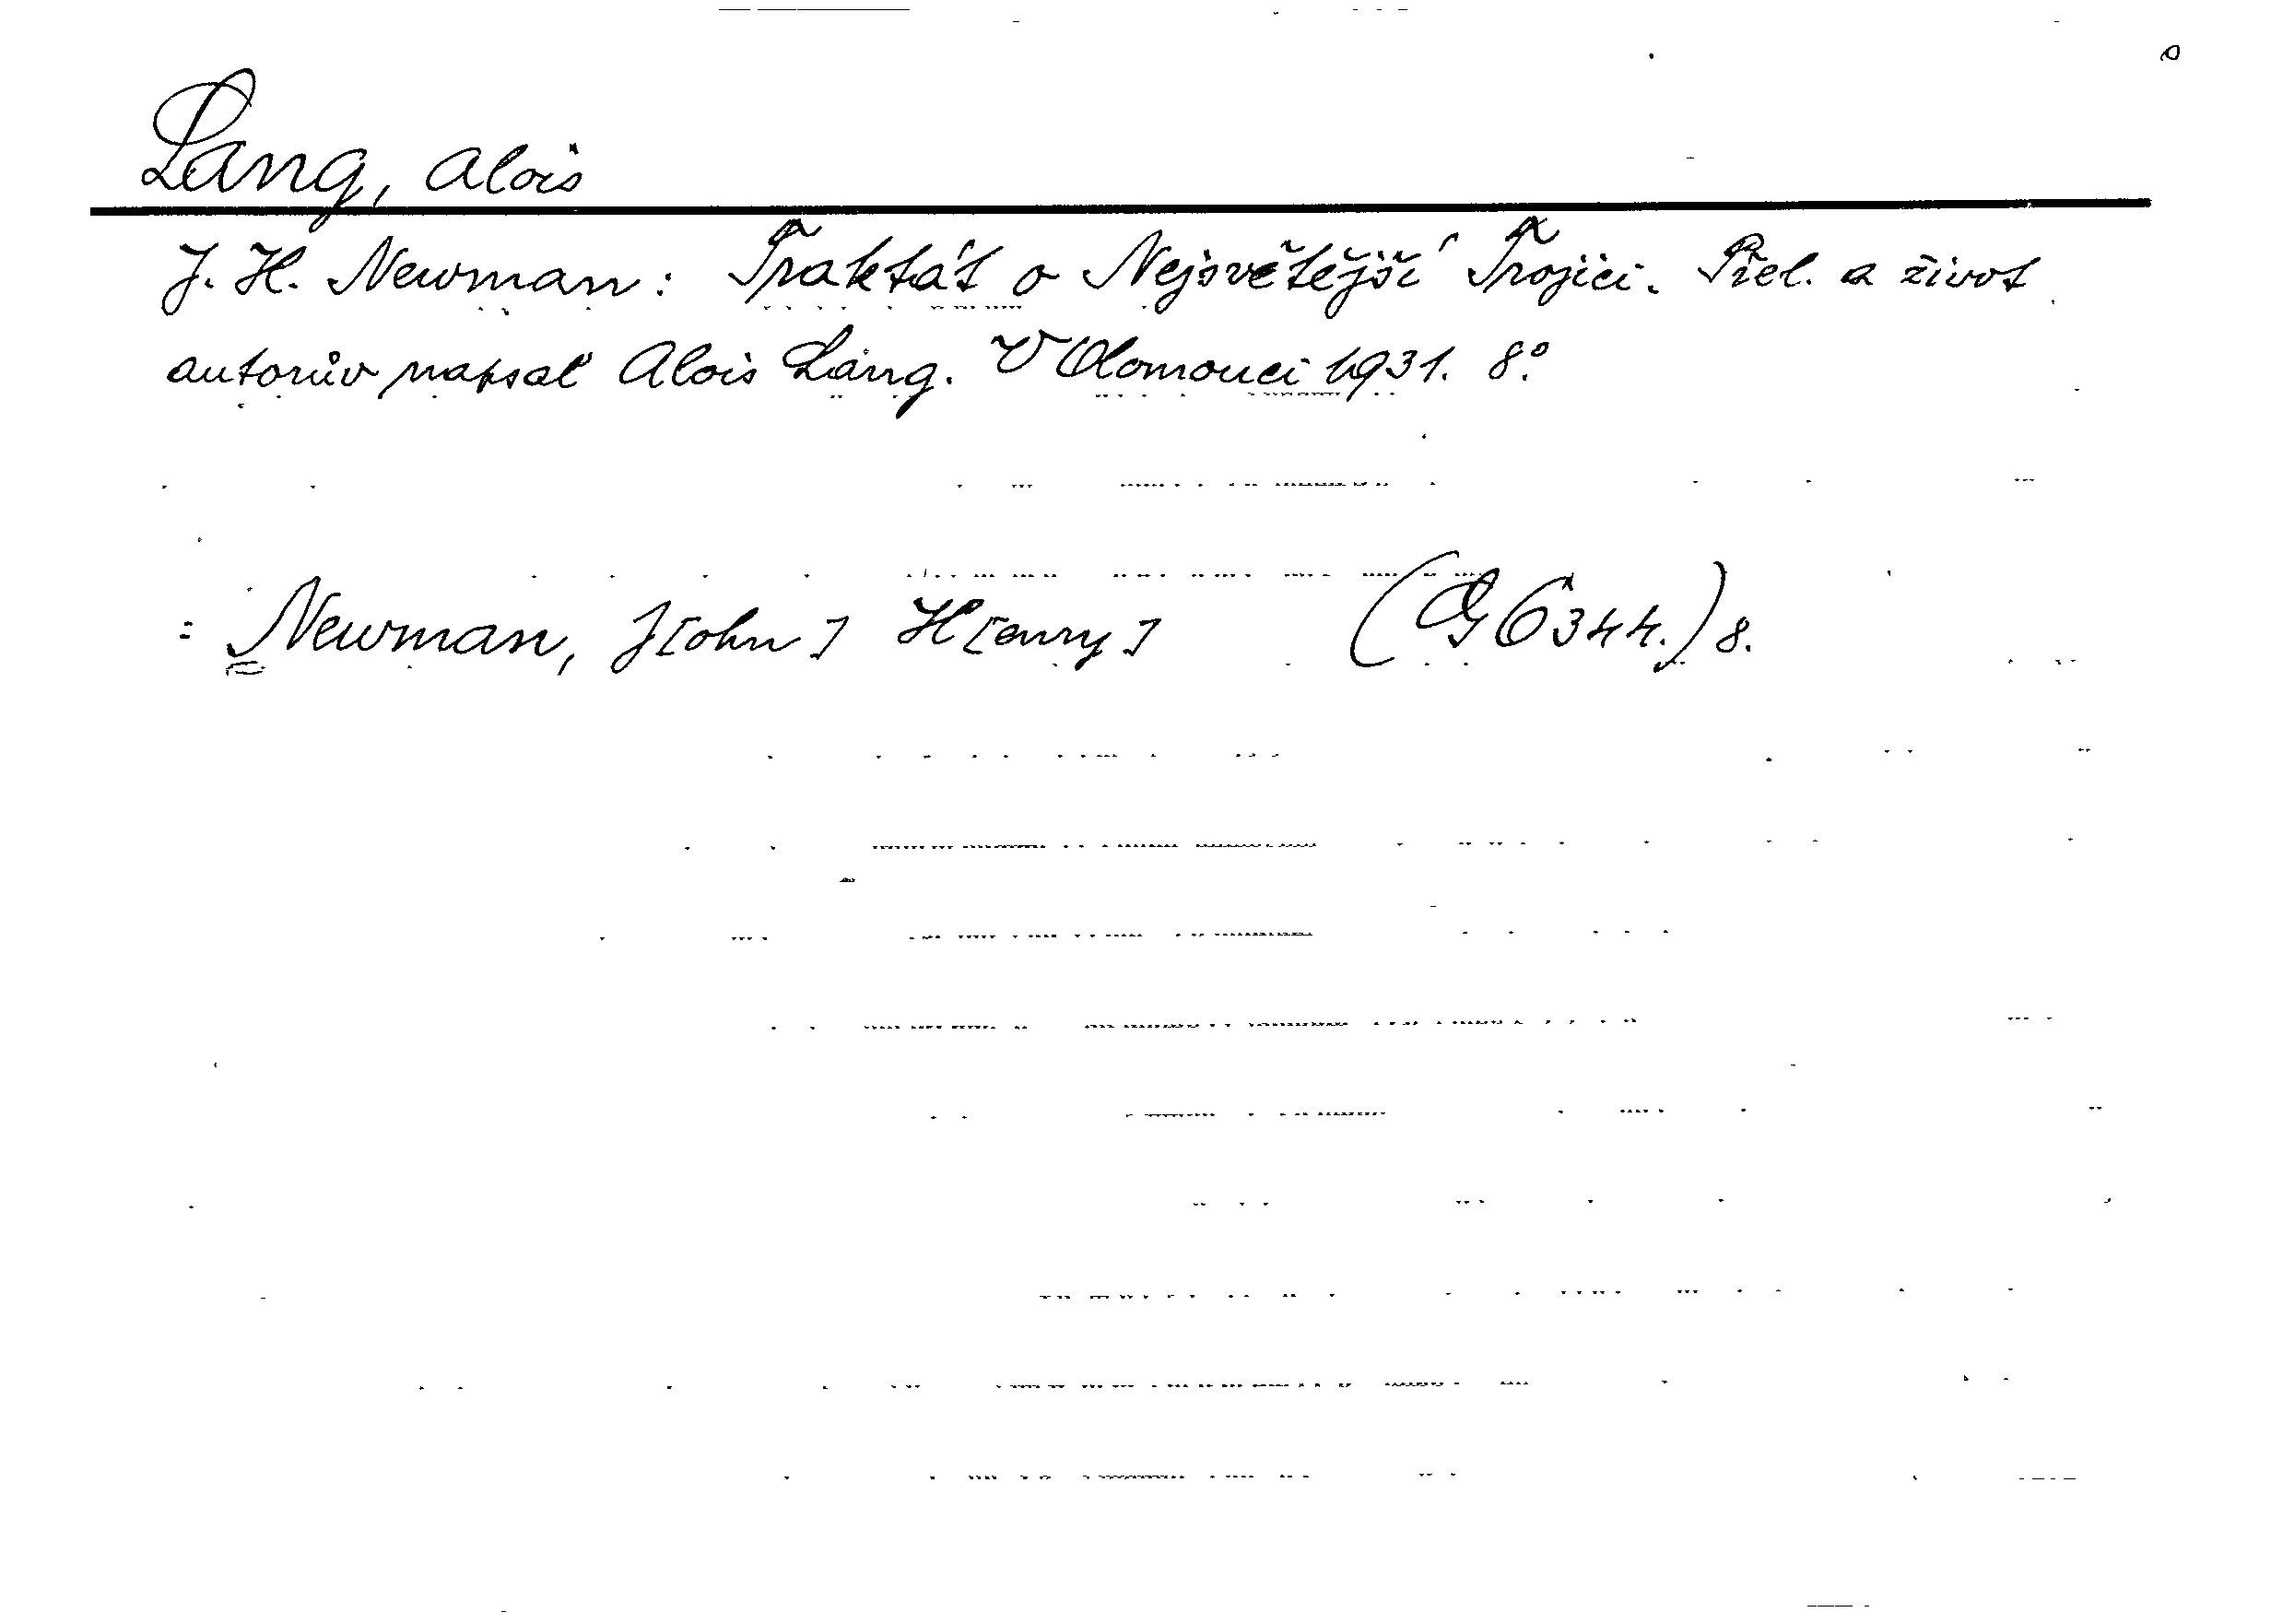 Lang, Alois
J. H. Newman: Traktát o Nejsvětější Trojici. Přel. a život
autorův napsal Alois Lang. V Olomouci 1931. 8°.
= Newman, J[ohn] H[enry] (G 6344.) 8.